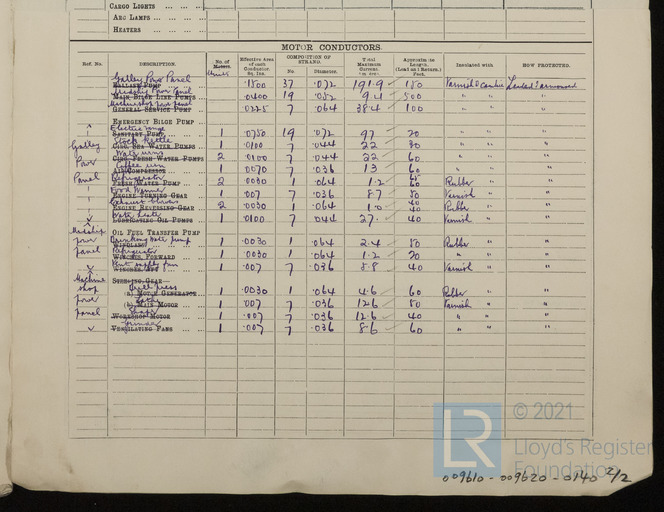 CARGO LIGHTS
ARC LAMPS
HEATERS
MOTOR CONDUCTORS.
Ref. No. DESCRIPTION. No. of Motors. Units Effective Area of each Conductor. Sq. Ins. COMPOSITION OF STRAND. No. Diameter. Total Maximum Current. Approximate Length. (Lead and Return.) Feet. Insulated with. HOW PROTECTED.
Galley Power Panel
BALLAST PUMP .1500 37 .072 191.9 150 Varnished cambric Leaded & armoured
MAIN BILGE LINE PUMPS .0400 19 .052 500 " " "
Machine shop power panel
GENERAL SERVICE PUMP .0225 7 .064 38.4 100 " " "
EMERGENCY BILGE PUMP
Electric range
SANITARY PUMP 1 .0750 19 .072 97 70 " " "
Galley
CIRC. SEA WATER PUMPS 1 .0100 7 .044 22 30 " " "
Water urns
Power CIRC. FRESH WATER PUMPS 2 .0100 7 .044 22 60 " " "
Coffee urn
AIR COMPRESSOR 1 .0070 7 .036 13 60 " " "
Panel Refrigerator
FRESH WATER PUMP 2 .0030 1 .064 1.2 60 Rubber " "
ENGINE TURNING GEAR 1 .007 7 .036 7.7 50 Varnish " "
ENGINE REVERSING GEAR 2 .0030 1 .064 1.0 40 Rubber " "
Water heater
LUBRICATING OIL PUMPS 1 .0100 7 .044 27. 40 Varnish " "
Midship OIL FUEL TRANSFER PUMP
power Drinking water pump
WINDLASS 1 .0030 1 .064 2.4 50 Rubber " "
panel Refrigerator
WINCHES, FORWARD 1 .0030 1 .064 1.2 70 " " "
WINCHES, AFT 1 .007 7 .036 8.8 40 Varnish " "
Machine STEERING GEAR
shop Drill press
(a) MOTOR GENERATOR 1 .0030 1 .064 4.6 60 Rubber " "
power Lathe
(b) MAIN MOTOR 1 .007 7 .036 12.6 50 Varnish " "
panel
WORKSHOP MOTOR 1 .007 7 .036 12.6 40 " " "
Grinder
VENTILATING FANS 1 .007 7 .036 8.6 60 " " "
LR © 2021
Lloyd's Register
Foundation
009610 - 009620 - 0140 2/2